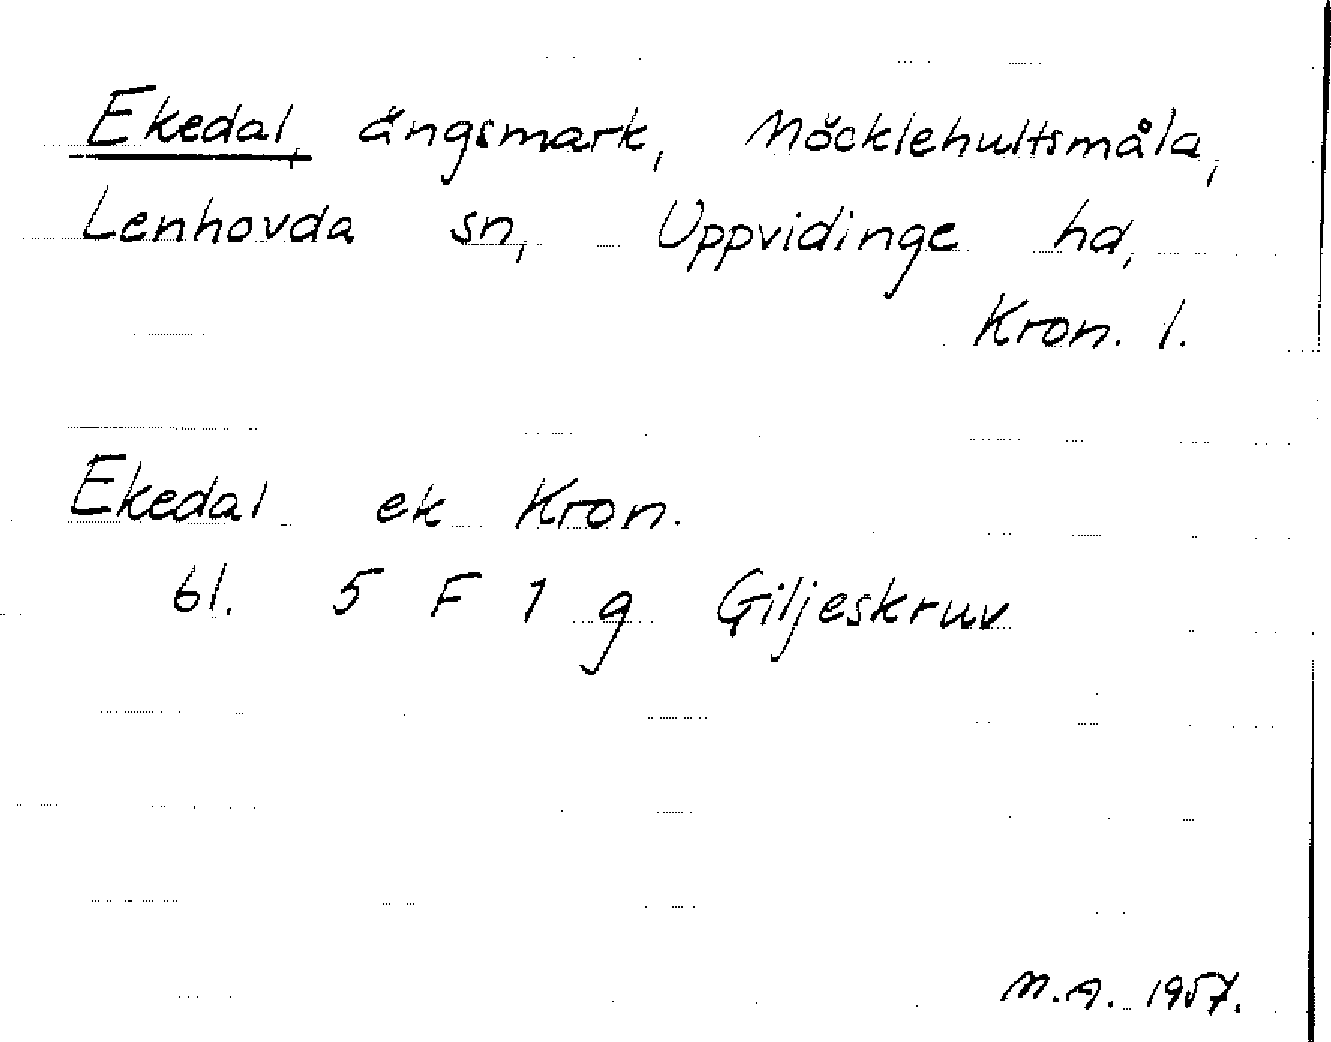 Ekedal, ängsmark, Möcklehultsmåla,
Lenhovda sn, Uppvidinge hd,
Kron. l.
Ekedal ek Kron.
bl. 5 F 1 g Giljeskruv
M.A. 1957.